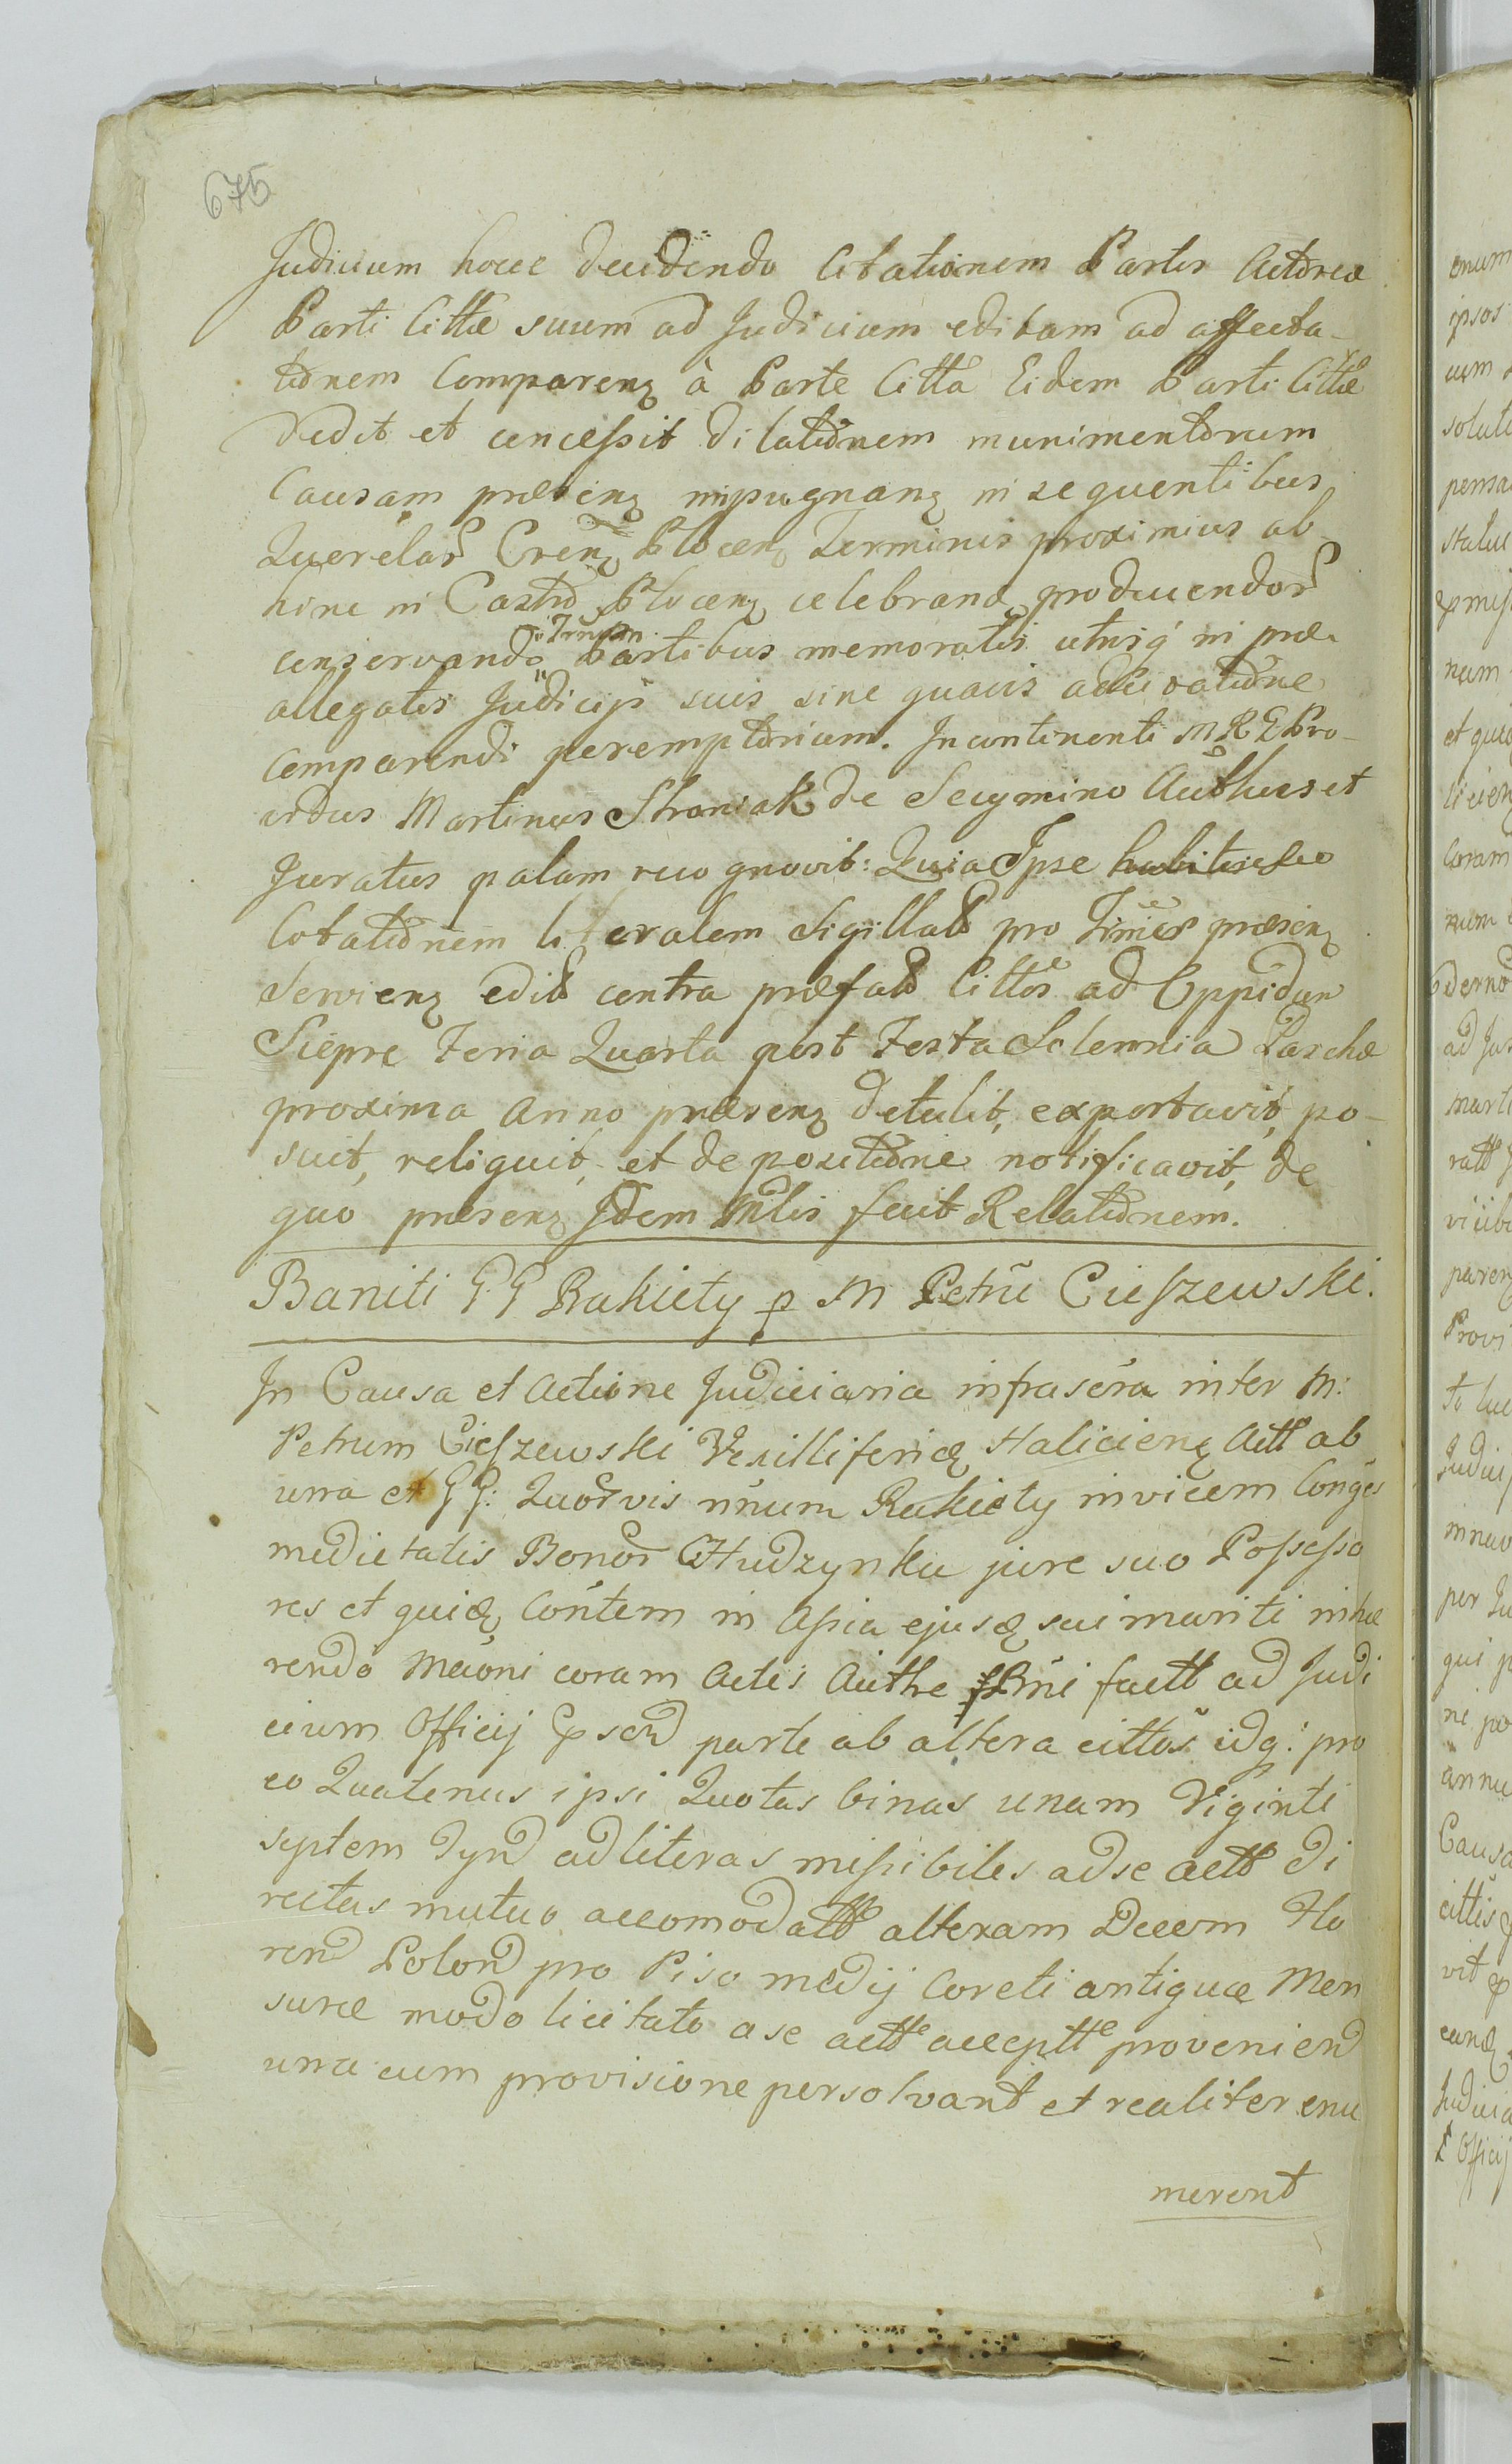 675
Judicium hocce decidendo Citationem Partis Actoreæ
Parti Cittæ suum ad Judicium editam ad affecta-
tionem Comparenȝ à Parte Citta Eidem Parti Cittæ
dedit et concessit dilationem munimentorum
Causam præsenȝ impugnanȝ in sequentibus
Querelar Crenȝ Plocenȝ Terminis proximius ab
hinc in Castro Plocenȝ celebranđ producendor
Trnum
conservando Partibus memoratis utrisq in præ
allegatis Judicijs suis sine quavis advocatione
comparendi peremptorium. Incontinenti M R G Pro-
vidus Martinus Stroniak de Secymino Authus et
Juratus palam recognovit: Quia Ipse
Citationem literalem Sigillat pro Trmis præsenȝ
Servienȝ edit contra præfat Cittos ad Oppidum
Siepre Feria Quarta post Festa Solennia Paschæ
proxima Anno præsenȝ detulit, exportavit, po-
suit, reliquit, et de positione notificavit, de
quo præsenȝ Idem Mlis fecit Relationem.
Baniti G G Rakiety p M Petrũ Cieszewski.
In Causa et Actione Judiciaria infrascra inter M:
Petrum Cieszewski Vexilliferidę Halicienȝ Actt ab
una et GG: Quorvis nnum Rakiety invicem Conges
medietatis Bonor Chudzynka jure suo Possesso
res et quidę Contem in Assia ejusdę sui mariti inhæ
rendo Mãoni coram Actis Authe factt ad Judi
cium Officij parte ab altera cittos idq: pro
eo Quatenus ipsi Quotas binas unam Viginti
septem Tynđ ad literas missibiles ad se actt di
rectas mutuo accomodatt alteram Decem Flo
renđ Polonđ pro Piso medij Coreti antiquæ Men
suræ modo licitato a se actte acceptte provenienđ
una cum provisione persolvant et realiter enu
merent